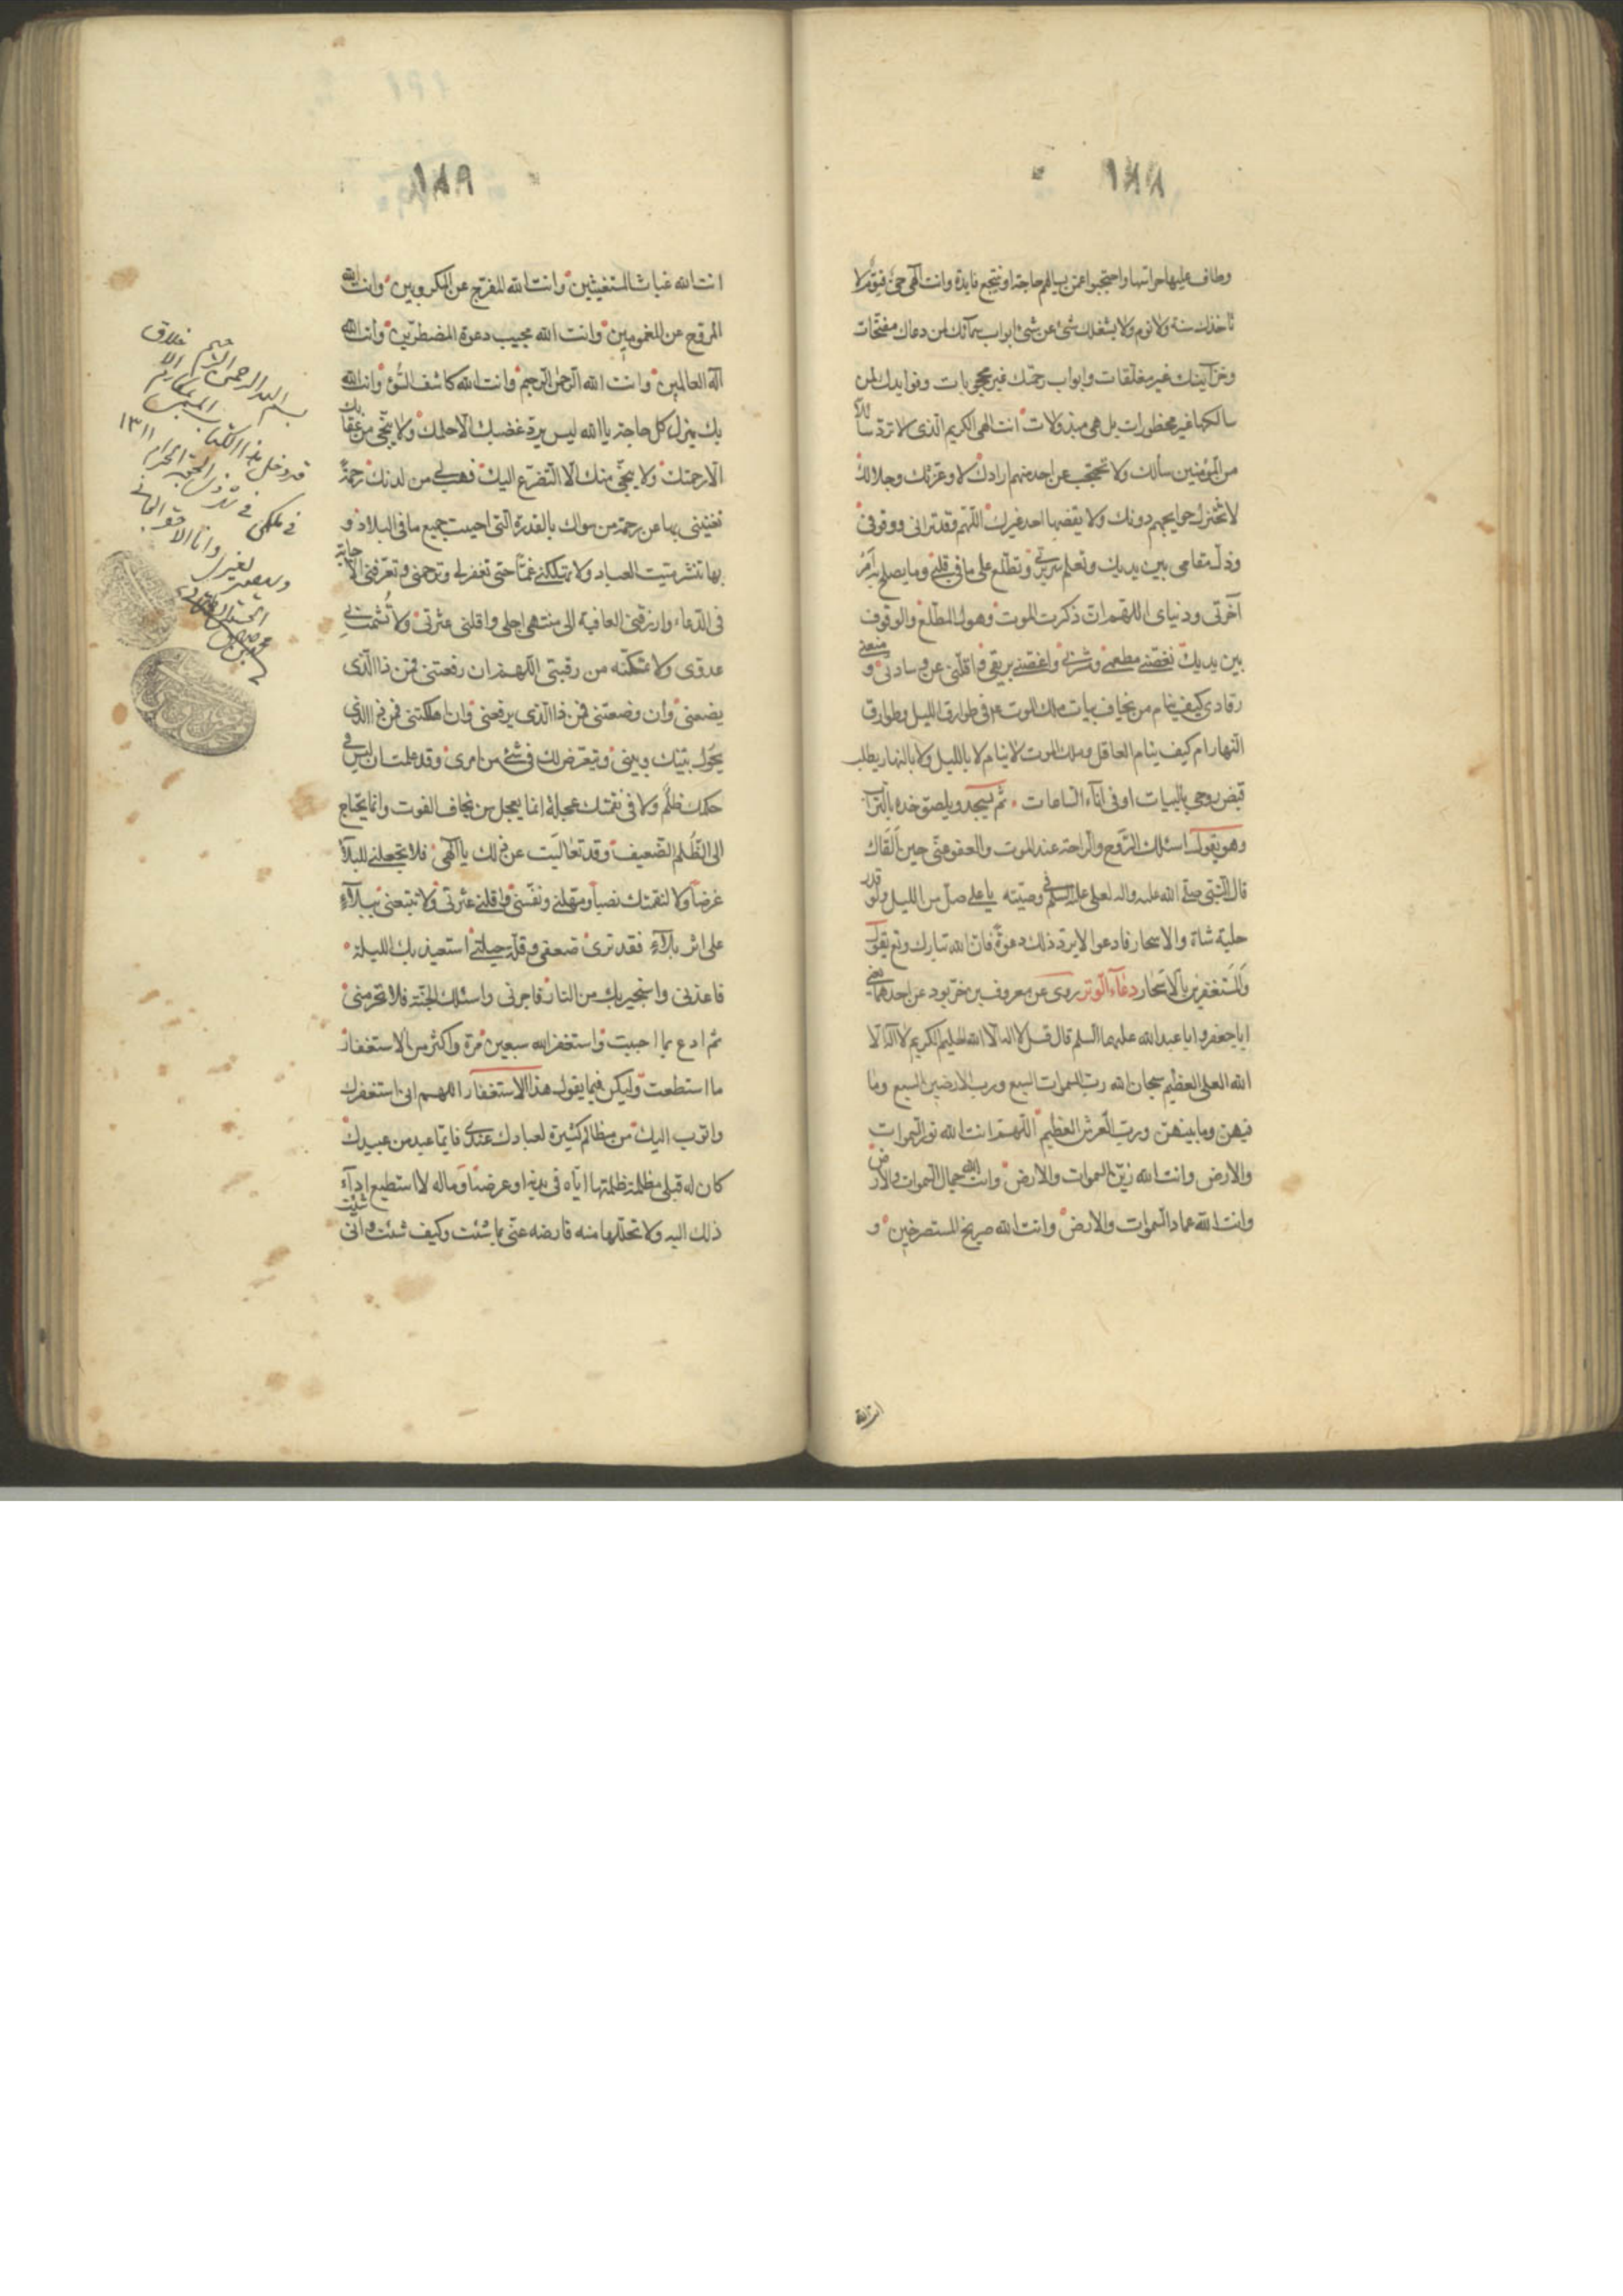 ١٨٨
وطاف عليها حراسها واحتجبوا عمن يسالهم حاجة او ينتجع فايدة وانت الهى حىّ قيّوم لا
تاخذك سنة ولا نوم ولا يشغلك شئ عن شئ ابواب سمآئك لمن دعاك مفتحات
وخزآئنك غير مغلّقات وابواب رحمتك غير محجوبات وفوايدك لمن
سالكها غير محظورات بل هى مبذولات انت الهى الكريم الّذى لا تردّ سآئلا
من المؤمنين سألك ولا تحتجب عن احد منهم ارادك لا وعزّتك وجلالك
لا تختزل حوايجهم دونك ولا يقضيها احد غيرك اللّهمّ وقد ترانى ووقوفى
وذلّ مقامى بين يديك وتعلم سريرتى وتطّلع على ما فى قلبى وما يصلح به امر
آخرتى ودنياى اللهم ان ذكرت الموت وهول المطّلع والوقوف
بين يديك نغّصنى مطعمى ومشربى واغصّنى بريقى واقلقنى عن وسادتى و منعنى
رقادى كيف ينام من يخاف بيات ملك الموت فى طوارق الليل وطوارق
النهار ام كيف ينام العاقل وملك الموت لا ينام لا بالليل ولا بالنهار يطلب
قبض روحى بالبيات او فى اناء الساعات ثم يسجد ويلصق خده بالتراب
وهو يقول اسئلك الرّوح والراحة عند الموت والعفو عنّى حين القاك
قال النّبى صلّى الله عليه واله لعلى عليه السلم فى وصيّته يا على صلّ من الليل ولو قدر
حلبة شاة والاسحار فادعوا لا يردّ ذلك دعوة فانّ الله تبارك وتع يقول
والمستغفرين بالاسحار دعآء الوتر روى عن معروف بن خرّبوذ عن احدهما يعنى
ابا جعفر وابا عبد الله عليهما السلم قال قل لا اله الا الله الحليم الكريم لا اله الا
الله العلى العظيم سبحان الله ربّ السموات السبع وربّ الارضين السبع وما
فيهن وما بينهن وربّ العرش العظيم اللّهم انت الله نور السموات
والارض وانت الله زين السموات والارض وانت الله جمال السموات والارض
وانت الله عماد السموات والارض وانت الله صريخ المستصرخين و
انت الله
١٨٩
انت الله غياث المستغيثين وانت الله المفرّج عن المكروبين وانت الله
المروّح عن المغمومين وانت الله مجيب دعوة المضطرّين وانت الله
اله العالمين وانت الله الرّحمن الرّحيم وانت الله كاشف السّوء وانت الله
بك ينزل كل حاجة يا الله ليس يردّ غضبك الا حلمك ولا ينجّى من عقابك
الا رحمتك ولا ينجّى منك الا التضرّع اليك فهب لى من لدنك رحمة
تغنينى بها عن رحمة من سواك بالقدرة الّتى احييت جميع ما فى البلاد و
بها تنشر ميت العباد ولا تهلكنى غمّا حتى تغفر لى وترحمنى وتعرّفنى الاجابة
فى الدّعاء وارزقنى العافية الى منتهى اجلى واقلنى عثرتى ولا تُشمت بى
عدوّى ولا تمكّنه من رقبتى اللّهم ان رفعتنى فمن ذا الّذى
يضعنى وان وضعتنى فمن ذا الّذى يرفعنى وان اهلكتنى فمن ذا الذى
يحول بينك وبينى ويتعرّض لك فى شئ من امرى وقد علمت ان ليس فى
حكمك ظلم ولا فى نقمتك عجلة انما يعجل من يخاف الفوت وانما يحتاج
الى الظّلم الضعيف وقد تعاليت عن ذلك يا الهى فلا تجعلنى للبلآء
غرضا ولا لنقمتك نصبا ومهّلنى ونفّسنى واقلنى عثرتى ولا تتبعنى ببلآء
على اثر بلآء فقد ترى ضعفى وقلّة حيلتى استعيذ بك الليلة
فاعذنى واستجير بك من النار فاجرنى واسئلك الجنّة فلا تحرمنى
ثم ادع بما احببت واستغفر الله سبعين مرة واكثر من الاستغفار
ما استطعت وليكن فيما يقول هذا الاستغفار اللهم انى استغفرك
واتوب اليك من مظالم كثيرة لعبادك عندى فايّما عبد من عبيدك
كان له قبلى مظلمة ظلمتها ايّاه فى بدنه او عرضه او ماله لا استطيع ادآء
ذلك اليه ولا تحلّلها منه فارضه عنّى بما شئت وكيف شئت وانّى شئت
بسم الله الرحمن الرحيم
قد دخل هذا الكتاب المسمى بمكارم الاخلاق
فى ملكى فى شهر ذى الحجة الحرام ١٣١١
وسيصير لغيرى وانا الاحقر الجانى